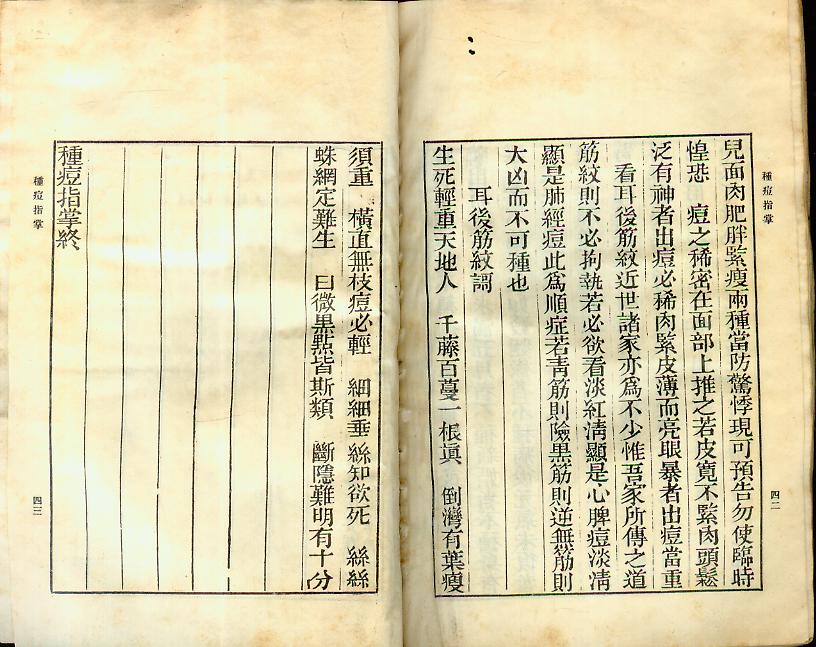 種痘指掌
四二
兒面肉肥胖緊瘦兩種當防驚悸現可預告勿使臨時
惶恐　痘之稀密在面部上推之若皮寬不緊肉頭鬆
泛有神者出痘必稀肉緊皮薄而亮眼暴者出痘當重
看耳後筋紋近世諸家亦爲不少惟吾家所傳之道
筋紋則不必拘執若必欲看淡紅淸顯是心脾痘淡淸
顯是肺經痘此爲順症若靑筋則險黑筋則逆無筋則
大凶而不可種也
耳後筋紋謌
生死輕重天地人　千藤百蔓一根眞　倒灣有葉瘦
須重　橫直無枝痘必輕　細細垂絲知欲死　絲絲
蛛網定難生　曰微黑點皆斯類　斷隱難明有十分
種痘指掌終
種痘指掌
四三